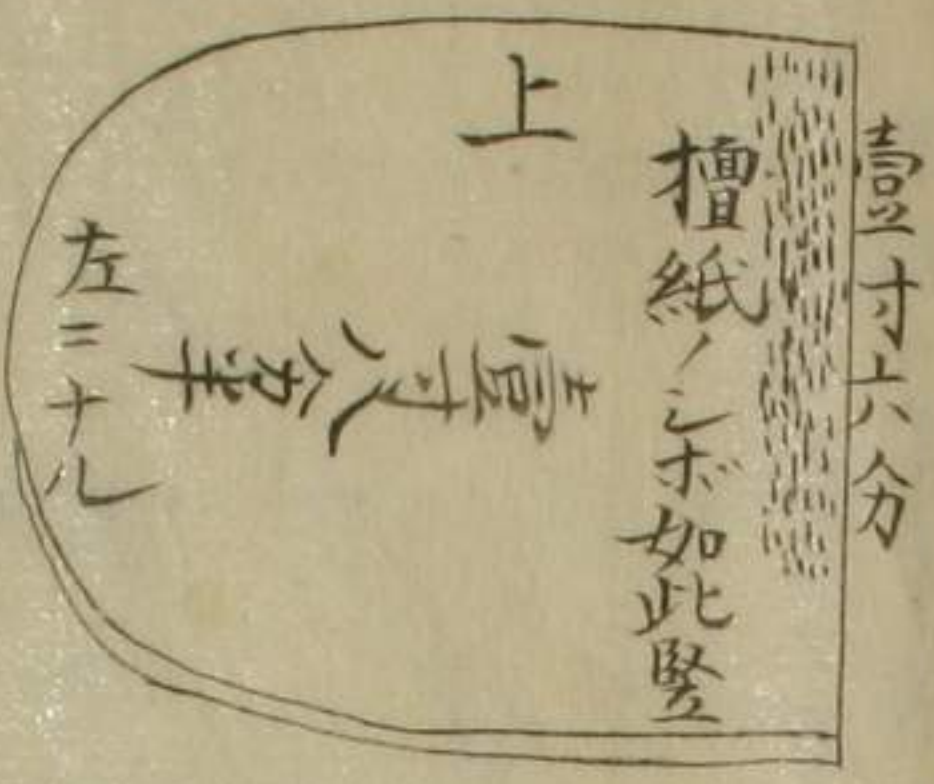 壹寸六分
檀紙ノシボ如此竪
上
壹寸八分半
左二十八